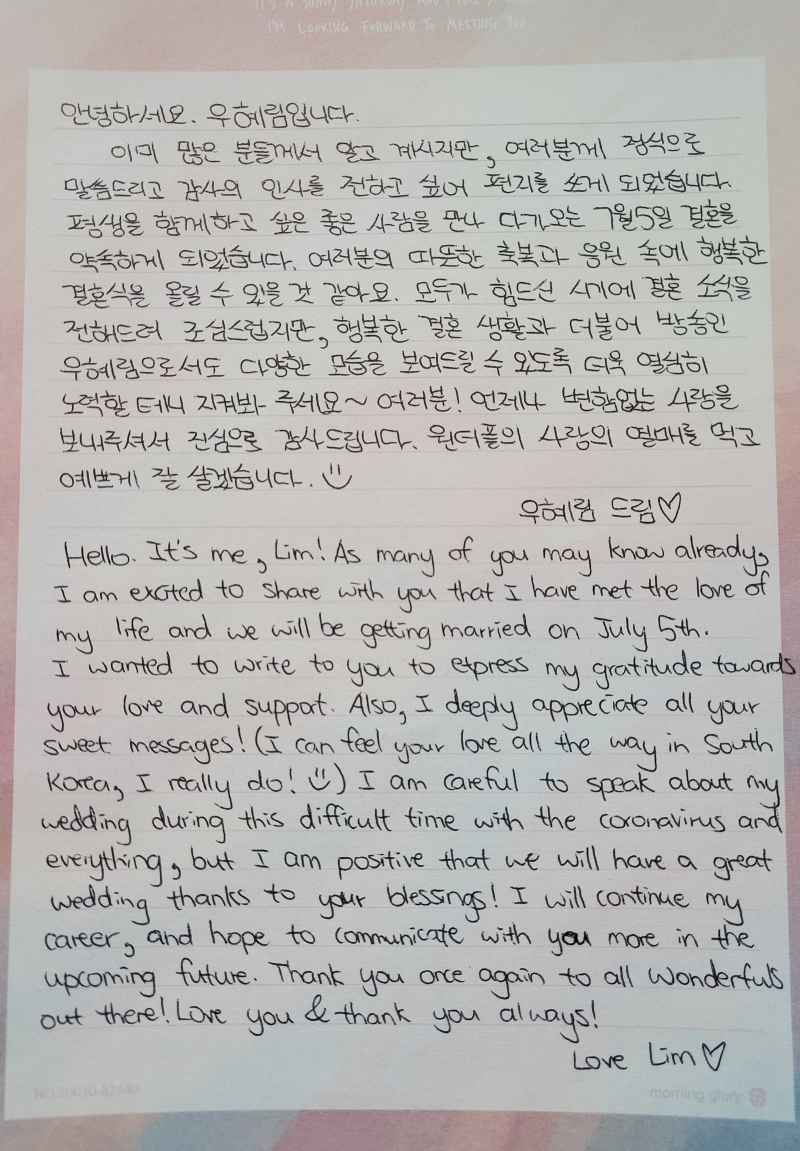 I'M LOOKING FORWARD TO MEETING YOU
안녕하세요. 우혜림입니다.
이미 많은 분들께서 알고 계시지만, 여러분께 정식으로
말씀드리고 감사의 인사를 전하고 싶어 편지를 쓰게 되었습니다.
평생을 함께하고 싶은 좋은 사람을 만나 다가오는 7월5일 결혼을
약속하게 되었습니다. 여러분의 따뜻한 축복과 응원 속에 행복한
결혼식을 올릴 수 있을 것 같아요. 모두가 힘드신 시기에 결혼 소식을
전해드려 조심스럽지만, 행복한 결혼 생활과 더불어 방송인
우혜림으로서도 다양한 모습을 보여드릴 수 있도록 더욱 열심히
노력할 테니 지켜봐 주세요~ 여러분! 언제나 변함없는 사랑을
보내주셔서 진심으로 감사드립니다. 원더풀의 사랑의 열매를 먹고
예쁘게 잘 살겠습니다.
우혜림 드림♡
Hello. It's me, Lim! As many of you may know already,
I am excited to share with you that I have met the love of
my life and we will be getting married on July 5th.
I wanted to write to you to express my gratitude towards
your love and support. Also, I deeply appreciate all your
sweet messages! (I can feel your love all the way in South
Korea, I really do! ) I am careful to speak about my
wedding during this difficult time with the coronavirus and
everything, but I am positive that we will have a great
wedding thanks to your blessings! I will continue my
career, and hope to communicate with you more in the
upcoming future. Thank you once again to all Wonderfuls
out there! Love you & thank you always!
Love Lim♡
NO.20010-82640
morning glory